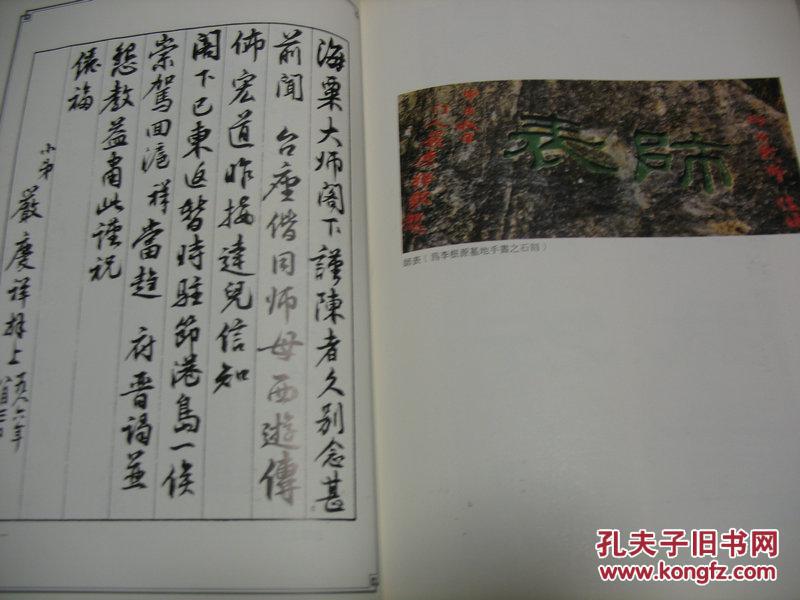 海粟大师阁下謹陳者久别念甚
前闻 台座偕同师母西遊傳
佈宏道昨接達兒信知
阁下已東返暂時駐節港島一俟
崇駕回滬祥當趋 府晋謁並
懇教益肅此謹祝
儷福
小弟 嚴慶祥拜上
一九八六年
師表
師表（爲李根源墓地手書之石刻）
孔夫子旧书网
www.kongfz.com